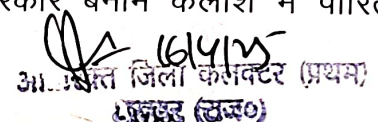 रकार बनाम कैलाश में पारित
16/4/25
जिला कलक्टर (प्रथम)
(राज०)